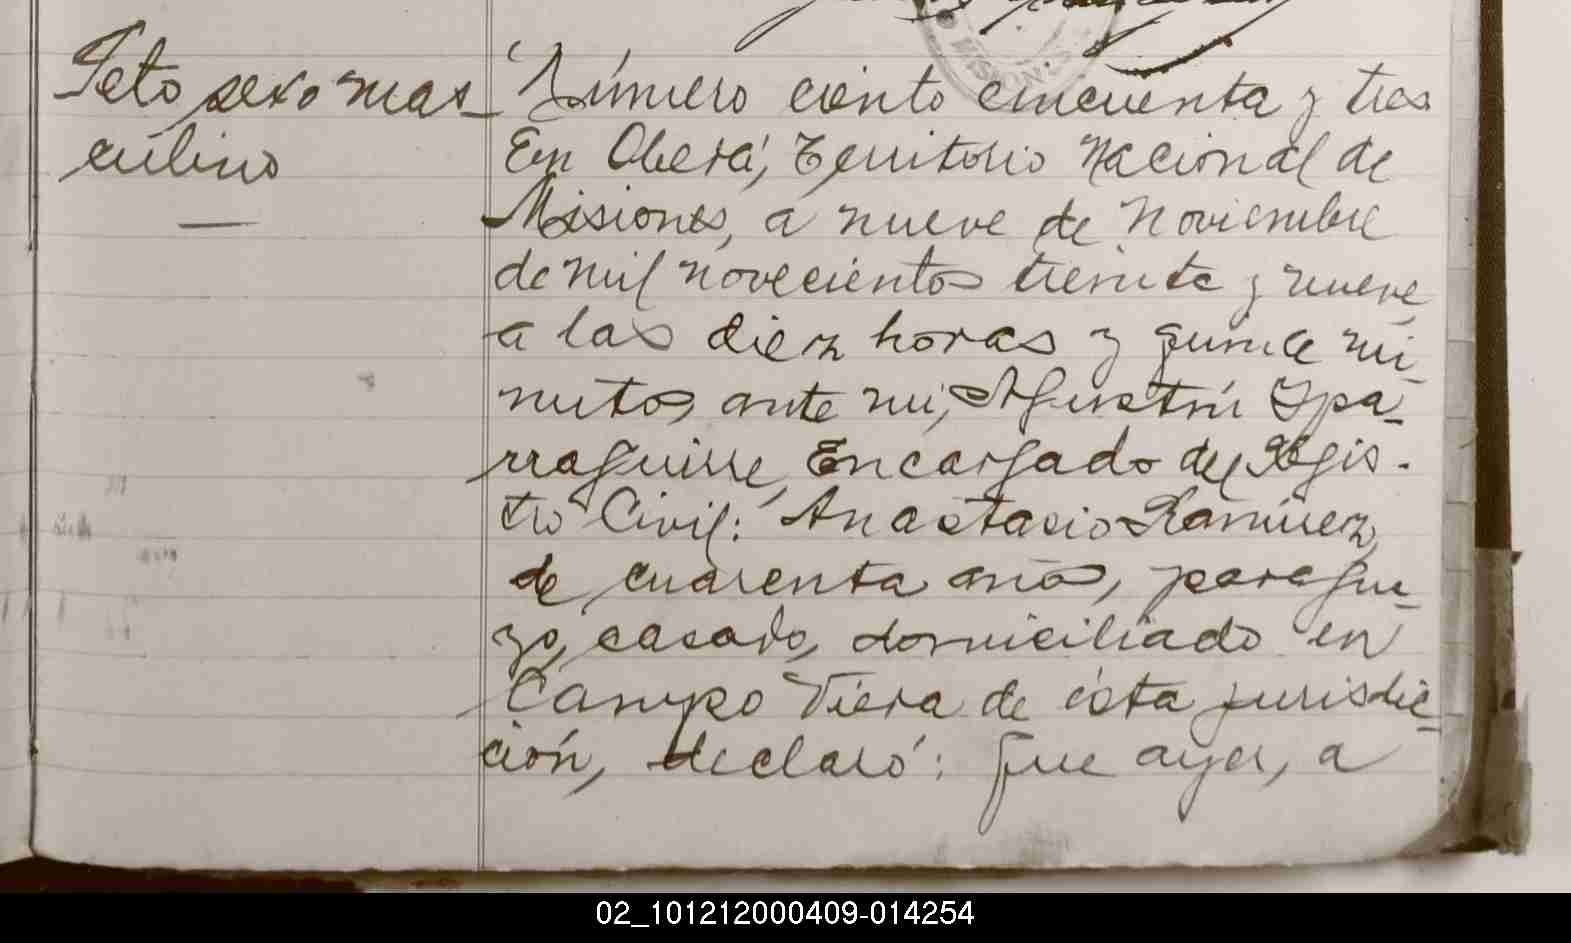 Feto sexo mas-
culino
Número ciento cincuenta y tres
En Oberá, Territorio Nacional de
Misiones, a nueve de Noviembre
de mil novecientos treinta y nueve,
a las diez horas y quince mi-
nutos, ante mi, Agustín Ypa-
rraguirre, Encargado del Regis-
tro Civil: Anastacio Ramírez,
de cuarenta años, paragua-
yo, casado, domiciliado en
Campo Viera de ésta jurisdic-
ción, declaró: Que ayer, a
02_101212000409-014254